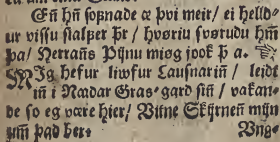 En hn sofnade æ þvi meir/ ei helld-
ur vissu sialfer þr / hvøriu svørudu hm
þa/ Herrans Pijnu miøg jook þ a.
MIg hefur liwfur Lausnariñ / leidt
iñ i Naadar Gras-gard siñ / vakan-
de so eg være hier/ Vitne Skijrneñ mijn
um þad ber:
Vng-